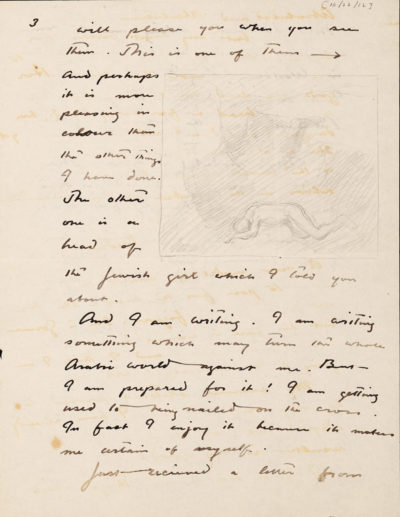 [10/22/12]
3
will please you when you see
them. This is one of them →
And perhaps
it is more
pleasing in
colour than
the other things
I have done.
The other
one is a
head of
the Jewish girl which I told you
about.
And I am writing. I am writing
something which may turn the whole
Arabic world against me. But—
I am prepared for it! I am getting
used to being nailed on the cross.
In fact I enjoy it because it makes
me certain of myself.
Just recieved a letter from